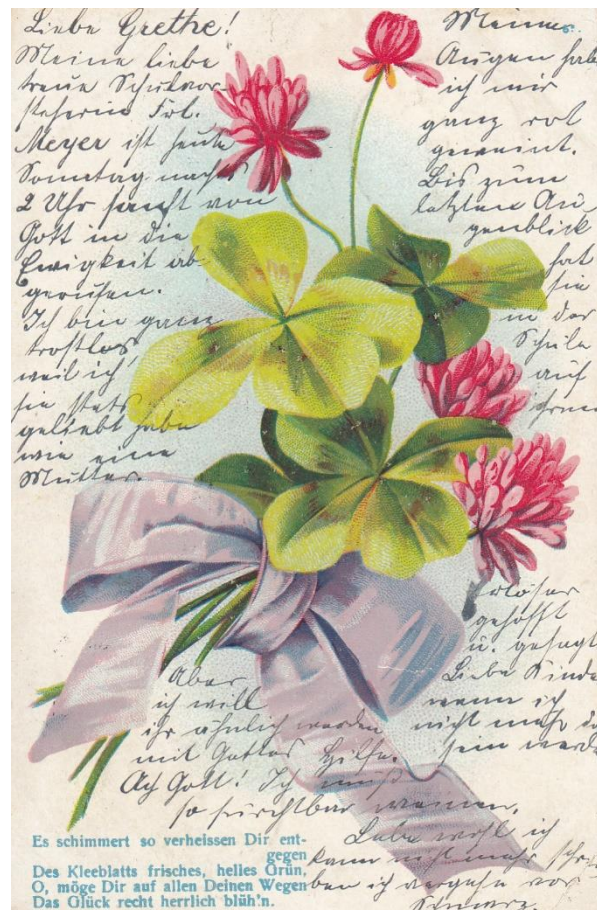 Liebe Grethe!
Meine liebe
treue Schulvor-
steherin Frl.
Meyer ist heute
Sonntag nachts
2 Uhr sanft von
Gott in die
Ewigkeit ab-
gerufen.
Ich bin ganz
trostlos
weil ich
sie stets
geliebt habe
wie eine
Mutter.
Meine
Augen hab
ich mir
ganz rot
geweint.
Bis zum
letzten Au-
genblick
hat
sie
in der
Schule
auf
ihren
Erlöser
gehofft
u. gesagt
Liebe Kinde
wenn ich
nicht mehr
sein werde
Aber
ich will
ihr ähnlich werden
mit Gottes Hilfe.
Ach Gott! Ich muß
so furchtbar weinen.
Lebe wohl ich
kann nicht mehr schrei
ben ich vergehe vor
Es schimmert so verheissen Dir ent-
gegen
Des Kleeblatts frisches, helles Grün,
O, möge Dir auf allen Deinen Wegen
Das Glück recht herrlich blüh'n.